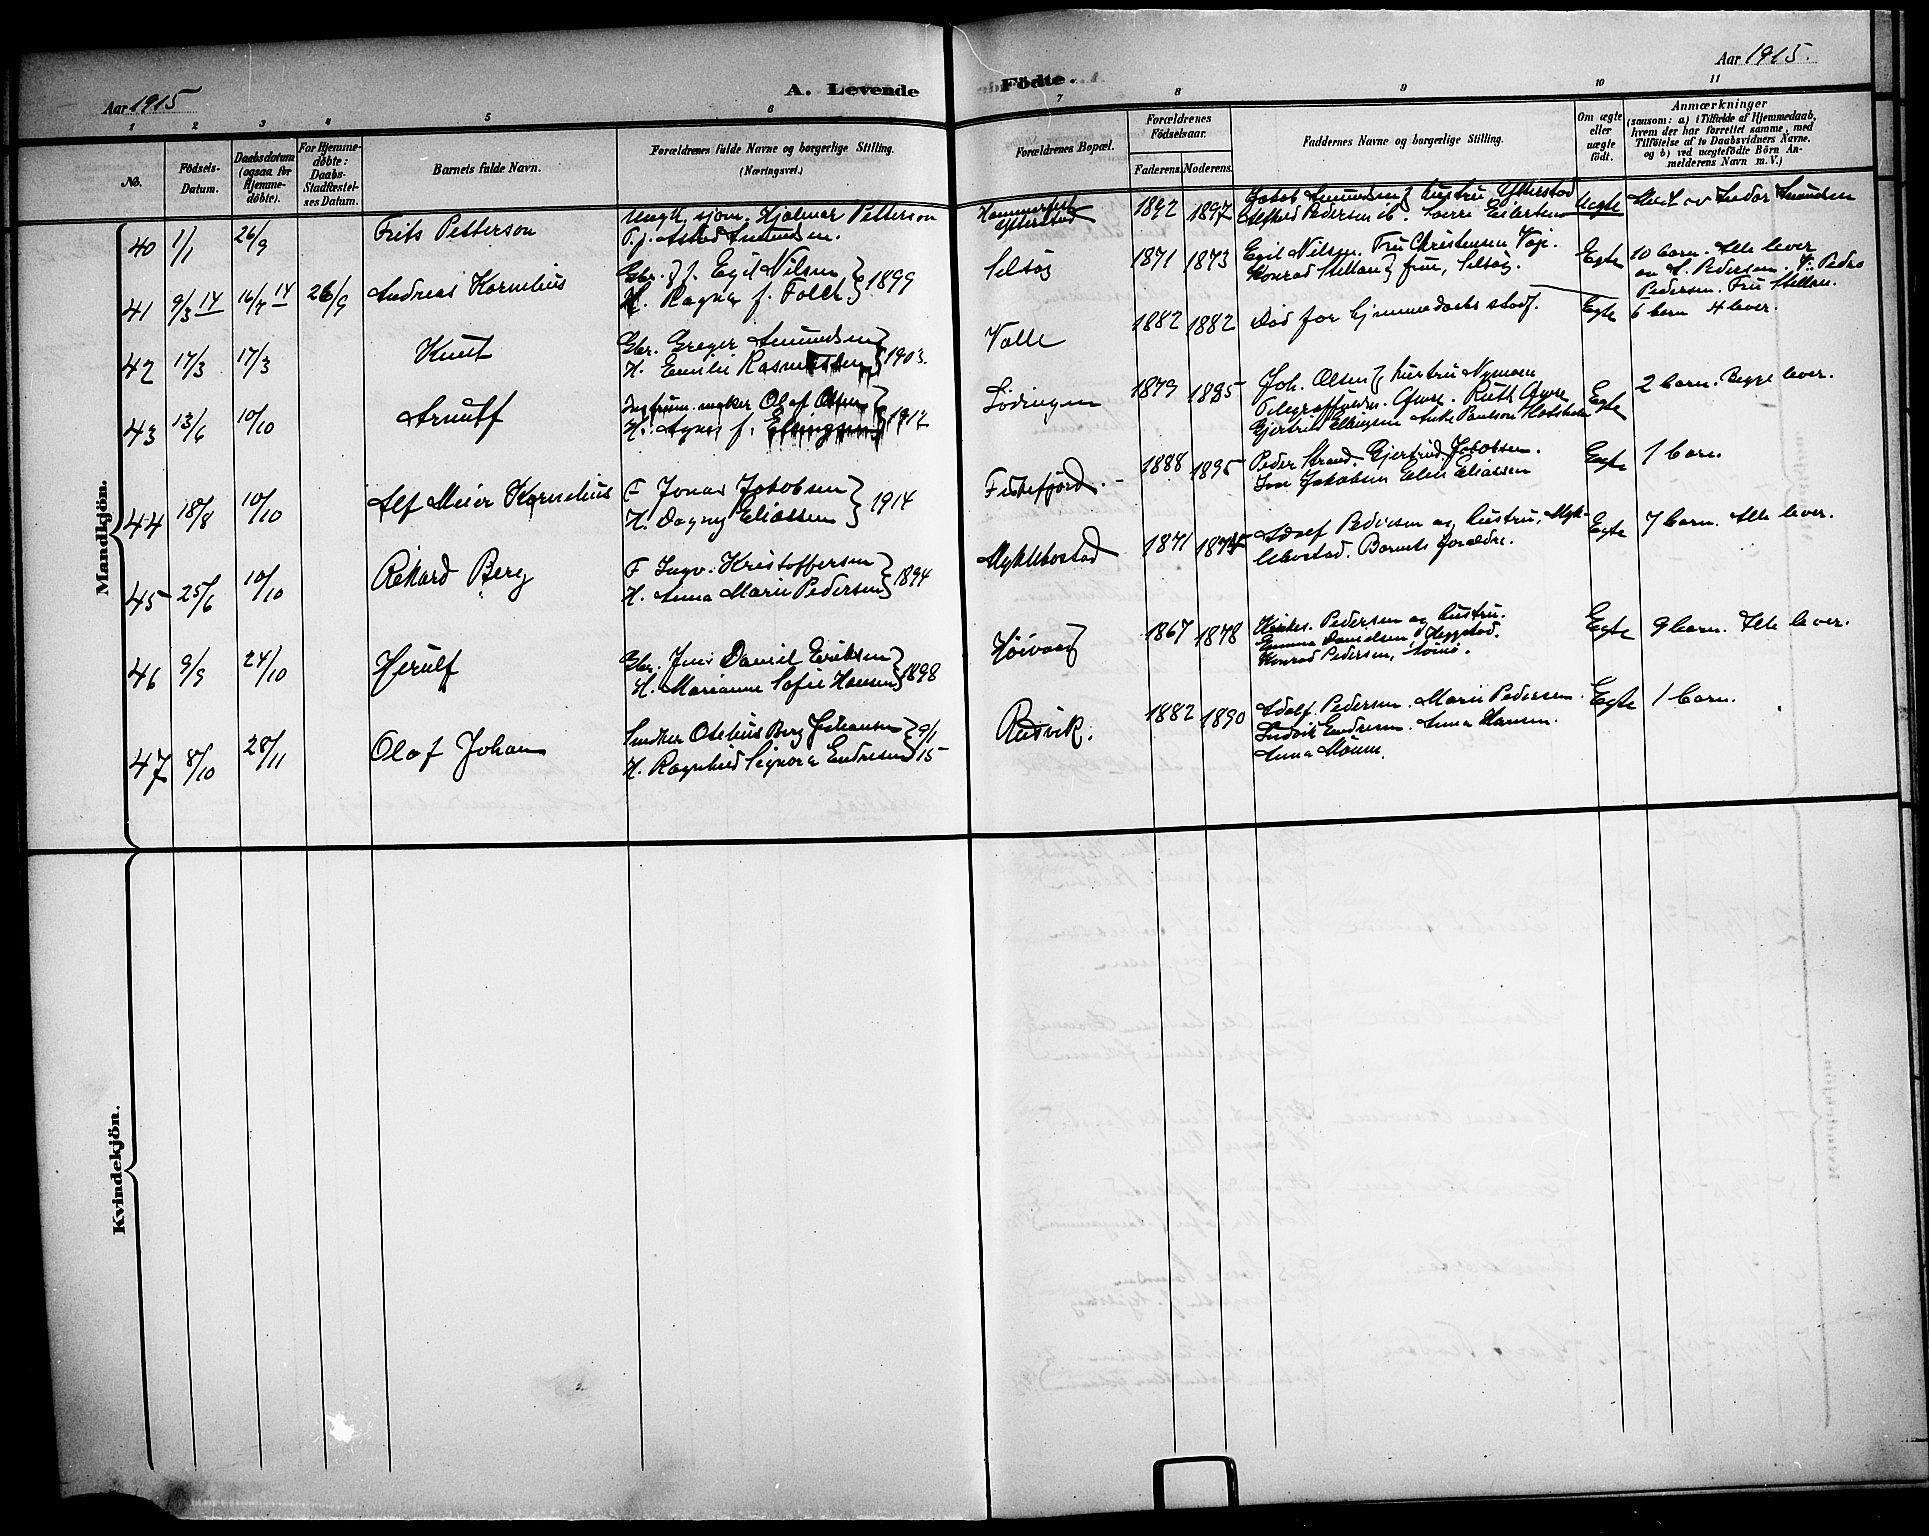 Aar 1915
A. Levende
Födte.
Aar 1915.
1 2 3 4 5 6 7 8 9 10 11
No.
Födsels-
Datum.
Daabsdatum
(ogsaa for
Hjemme-
döbte).
For Hjemme-
döbte:
Daabs-
Stadfæstel-
ses Datum.
Barnets fulde Navn.
Forældrenes fulde Navne og borgerlige Stilling.
(Næringsvei.)
Forældrenes Bopæl.
Forældrenes
Födselsaar.
Faderens. Moderens.
Faddernes Navne og borgerlige Stilling.
Om ægte
eller
uægte
födt.
Anmærkninger
(saasom: a) i Tilfælde af Hjemmedaab,
hvem der har forrettet samme, med
Tilföielse af to Daabsvidners Navne.
og b) ved uægtefödte Börn An-
melderens Navn m. V.)
Mandkjön.
40 1/1 26/9 Frits Petterson
Ungk. sjøm. Hjalmar Petterson
P.j. Astrid Amundsen.
Hammerfest
Ytterstad
1892 1897
Jakob Amundsen } hustru Ytterstad
Alfred Pedersen Eilertsen
Uegte
41 9/3 14 16/7 14 26/9 Andreas Kornelius
Gbr. Egil Nilsen
H. Ragna f. Falch } 1899
Selsøy
1871 1873
Egil Nilsen. Fru Christensen
Konrad Stellan } frue, Selsøy.
Egte
10 barn. Alle lever
Pedersen. Fru Stellan.
42 17/3 17/3 Knut
Gbr. Greger Amundsen
H. Emilie Rasmussen } 1903.
Valle
1882 1882
Død før hjemmedaabs stadf.
Egte
6 barn 4 lever.
43 13/6 10/10 Arnulf
Instrum. maker Olaf Olsen
H. Agnes f. Ellingsen } 1912
Lödingen
1879 1885
Joh. Olsen } hustru Nyman
Ruth
Gjertrud Ellingsen
Egte
2 barn. Begge lever.
44 18/8 10/10 Alf Meier Kornelius
F Jonas Jakobsen
H. Dagny Eliassen } 1914
Fiskefjord
1888 1895
Peder Strand. Gjertrud Jakobsen.
Ivar Jakobsen Elen Eliassen
Egte
1 barn.
45 25/6 10/10 Rikard Berg
F Ingv. Kristoffersen
H. Anna Marie Pedersen } 1894
Myklebostad
1871 1874
Adolf Pedersen og hustru, Myk-
lebostad. Barnets forældre.
Egte
7 barn. Alle lever.
46 9/9 24/10 Herulf
Gbr. Jens Daniel Eriksen
H. Marianne Sofie Hansen } 1898
Höivaag
1867 1878
Pedersen og hustru.
Emma Danielsen
Konrad Pedersen,
Egte
9 barn. Alle lever.
47 8/10 28/11 Olaf Johan
Snedker Otelius Berg Johansen } 9/1
H. Ragnhild Signora Endresen } 15
Rusvik.
1882 1890
Adolf Pedersen. Marie Pedersen
Ludvik Endresen. Anna Hansen.
Anna
Egte
1 barn.
Kvindekjön.